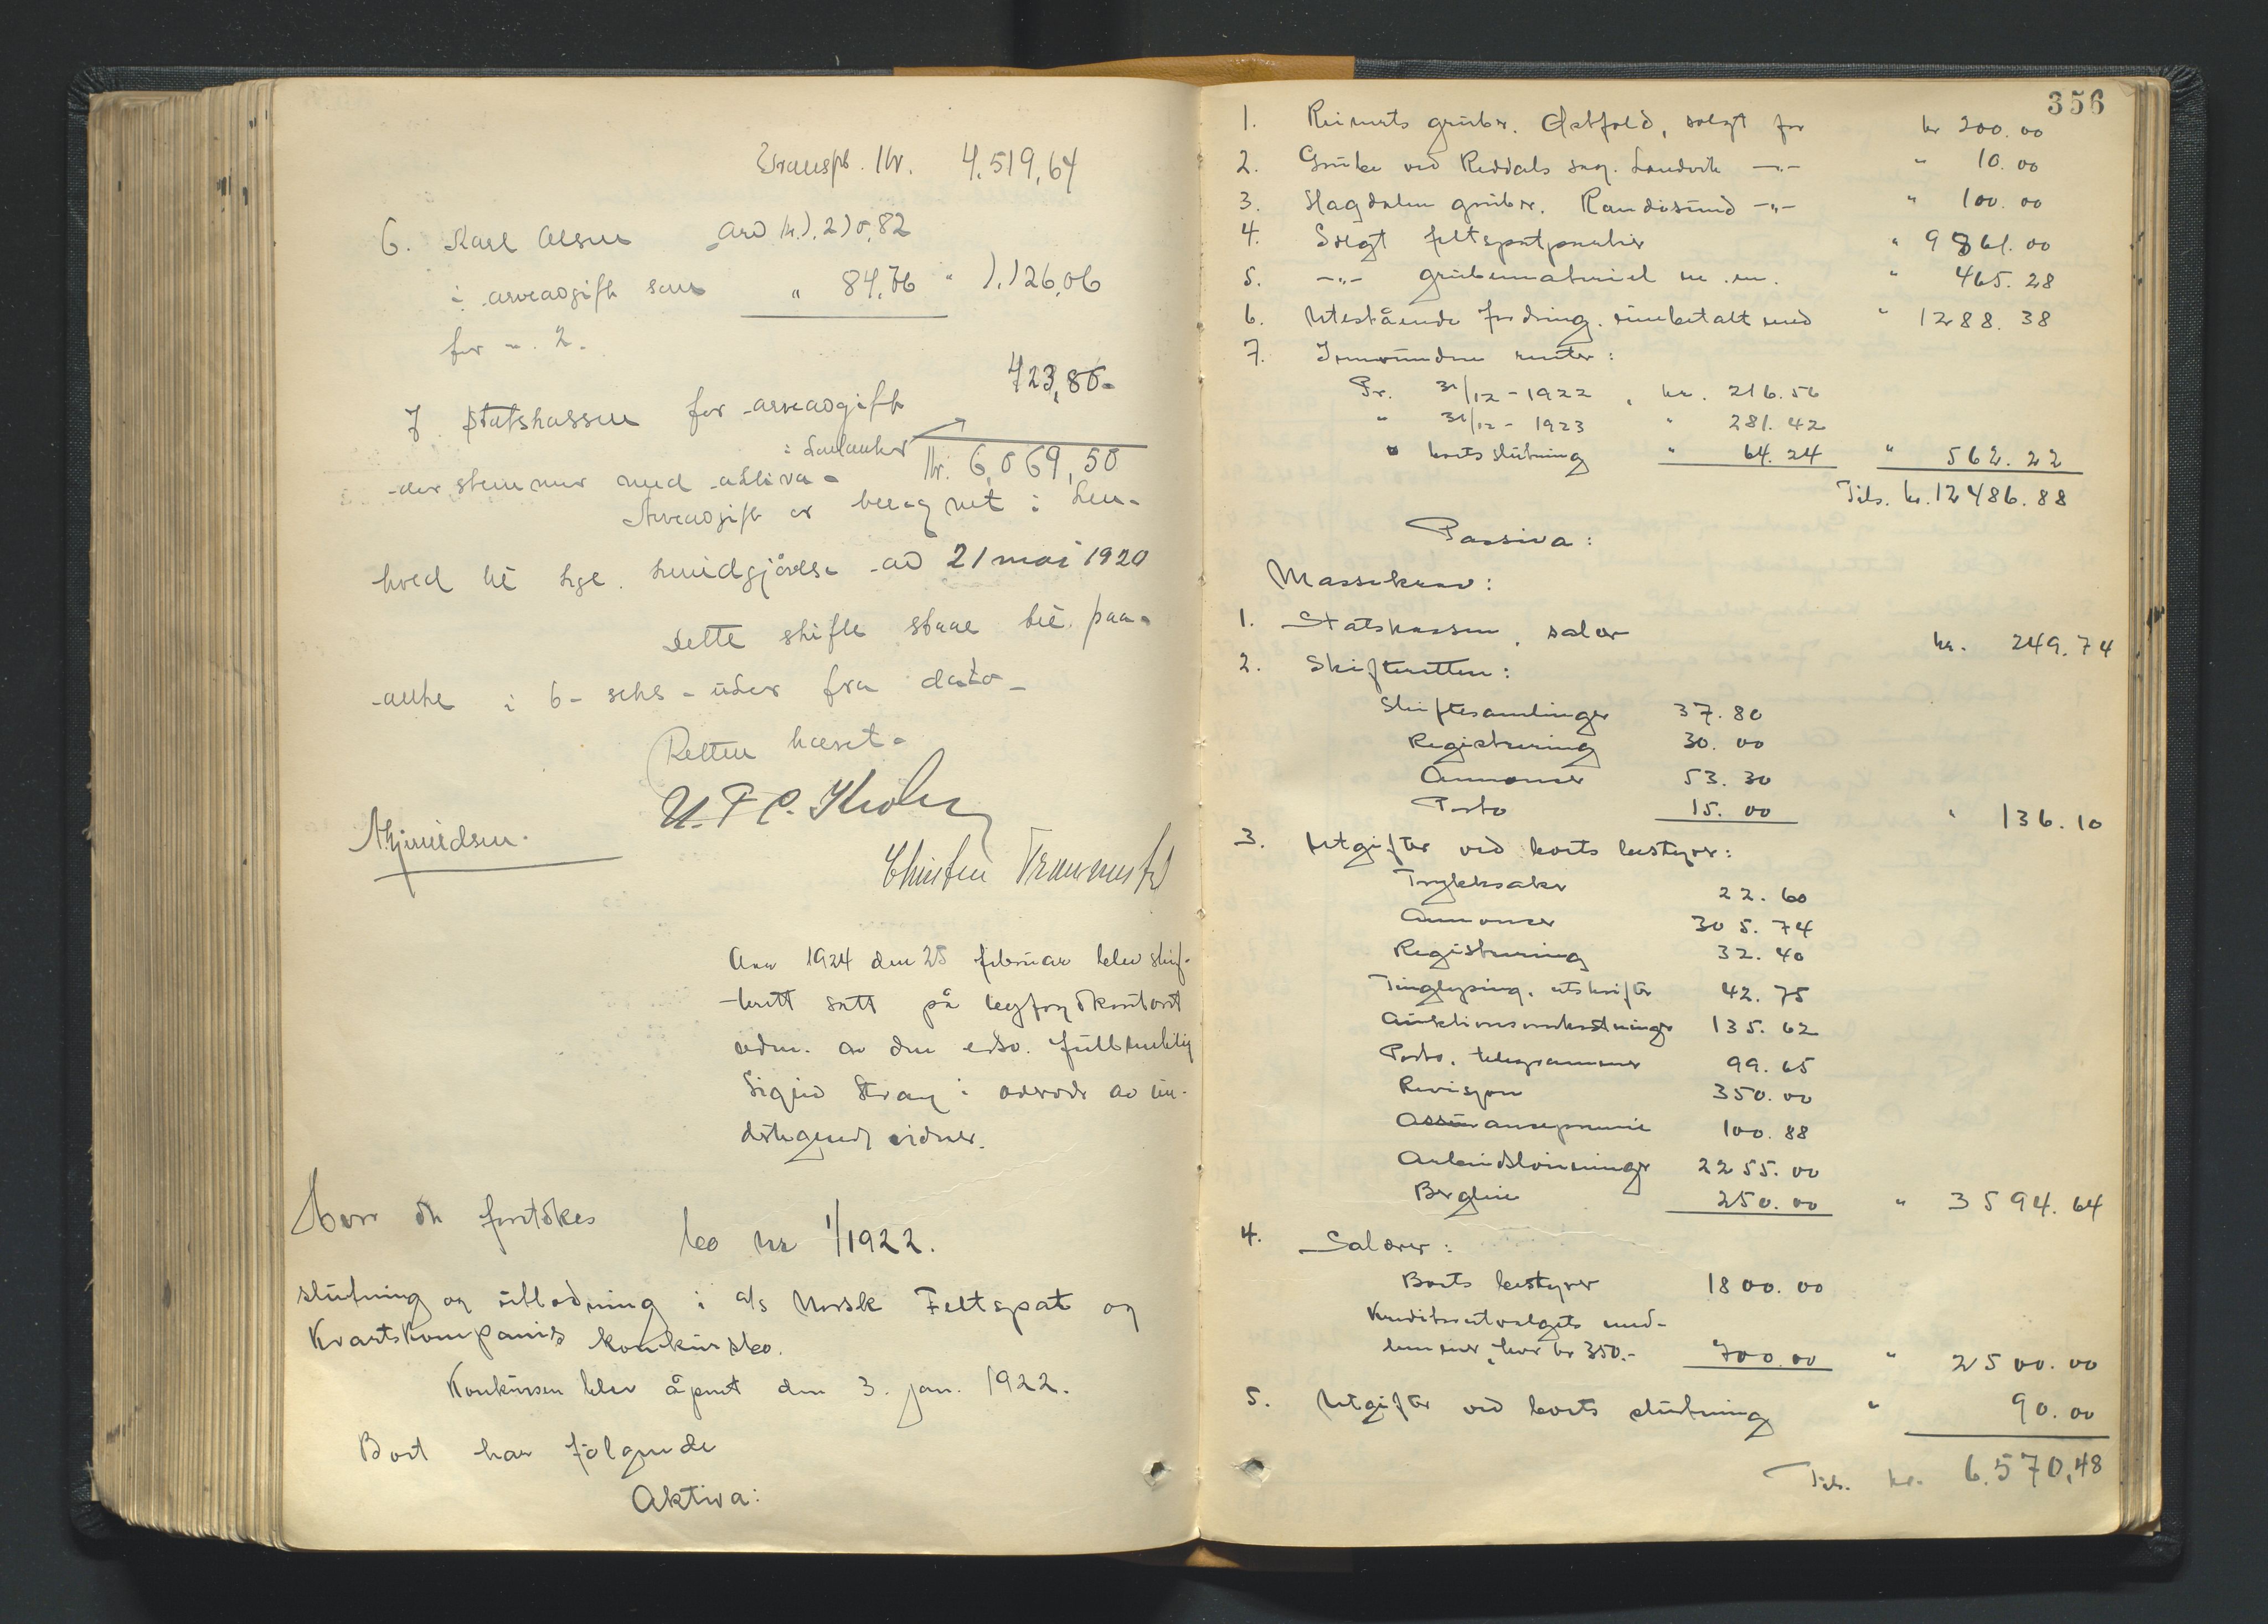 Transpt. Kr. 4.519,64
6. Karl Olsen arv kr. 1.210,82
i arveavgift som " 84,76 " 1.126,06
for nr. 2.
7. Statskassen for arveavgift 423,80
der stemmer med aktiva - kr. 6.069,50
Arveavgift er beregnet i hen-
hold til kgl. kundgjørelse av 21 mai 1920
Dette skifte staar til paa-
anke i 6 - seks - uker fra dato -
Retten hævet.
Christen
Aar 1924 den 25 februar blev skif-
terett satt på byfogdkontoret
adm. av den edsv. fullmektig
Sigurd Stray i overvær av un-
dertegnede vidner.
Hvor da foretokes
bo nr 1/1922.
slutning og utlodning i A/S Norsk Feltspat og
Kvartskompanis konkursbo.
Konkursen blev åpnet den 3. jan. 1922.
Boet har følgende
Aktiva:
356
1. Reinerts gruber. Østfold, solgt for kr 200.00
2. Grube ved Reddals sag. Landvik -"- " 10.00
3. Hagdalen gruber. Randøsund -"- " 100.00
4. Solgt feltspatpartier " 9861.00
5. -"- grubemateriel m.m. " 465.28
6. Utestående fordring. innbetalt med " 1288.38
7. Innvundne renter:
Pr. 31/12 - 1922, kr. 216.56
" 31/12 - 1923 " 281.42
" boets slutning " 64.24 " 562.22
Tils. kr. 12486.88
Passiva:
Massekrav:
1. Statskassen, salær kr. 249.74
2. Skifteretten:
Skiftesamlinger 37.80
Registrering 30.00
Annonser 53.30
Porto 15.00 " 136.10
3. Utgifter ved boets bestyrer:
Trykksaker 22.60
Annonser 305.74
Registrering 32.40
Tinglysing, utskrifter 42.75
Auktionsomkostninger 135.62
Porto, telegrammer 99.65
Revisjon 350.00
Assuransepremie 100.88
Arbeidslønninger 2255.00
Bergleie 250.00 " 3594.64
4. Salærer:
Boets bestyrer 1800.00
Kreditorutvalgets med-
lemmer, hver kr 350.- 700.00 " 2500.00
5. Utgifter ved boets slutning " 90.00
Tils. kr. 6.570,48